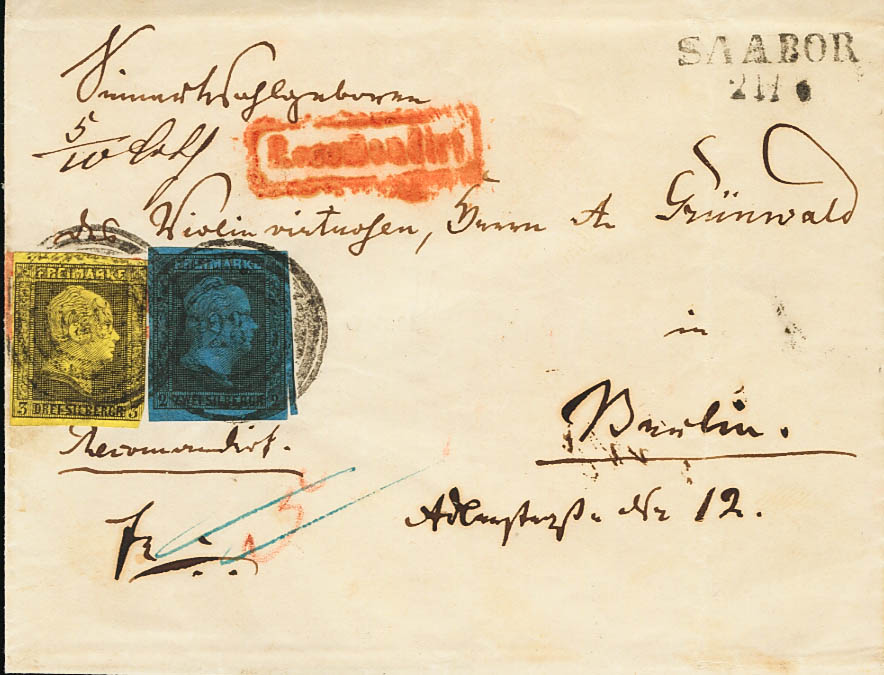 SAABOR
21/6
Seiner Wohlgeboren
5/10 Loth
Recomandirt
des Violinvirtuosen, Herrn A. Grünwald
FREIMARKE
3 DREI SILBERGR. 3
FREIMARKE
2 ZWEI SILBERGR. 2
in
Berlin.
Recomandirt.
fr
3
Adlerstraße No 12.